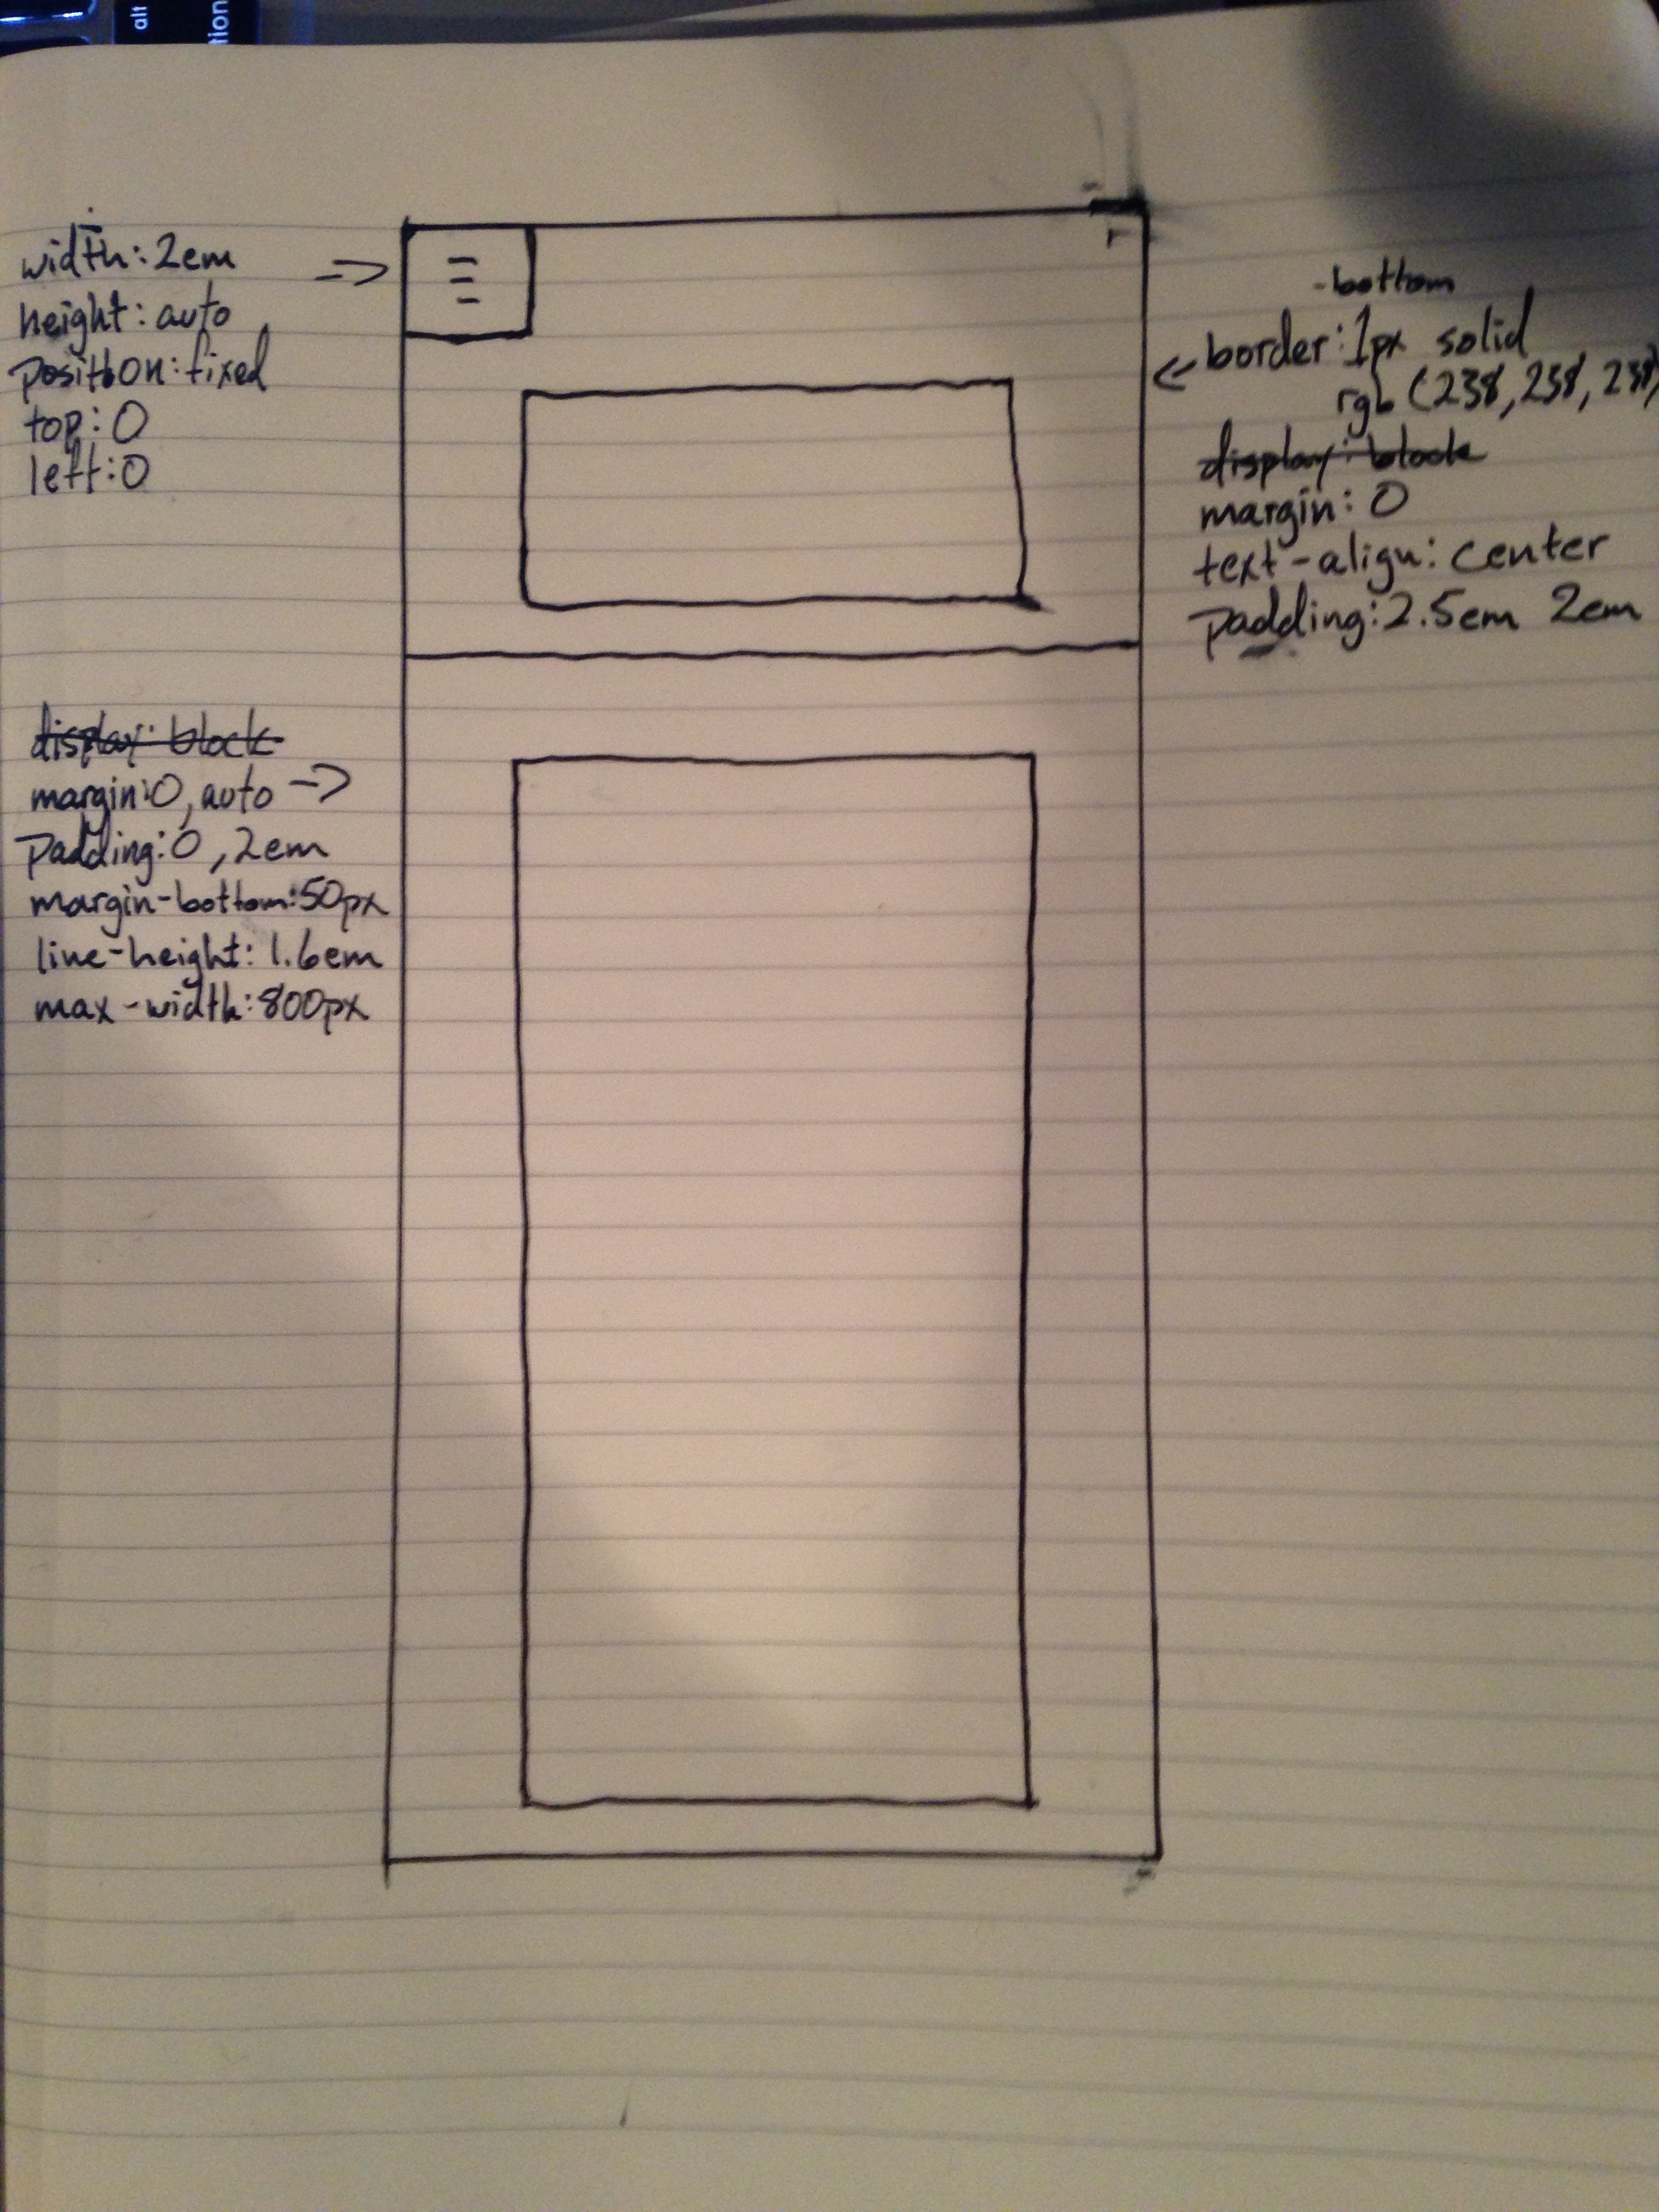 alt
tion
width: 2em
height: auto
position: fixed
top: 0
left: 0
-bottom
border: 1px solid
rgb (238, 238, 238)
display: block
margin: 0
text-align: center
padding: 2.5em 2em
display: block
margin: 0, auto
padding: 0, 2em
margin-bottom: 50px
line-height: 1.6em
max-width: 800px